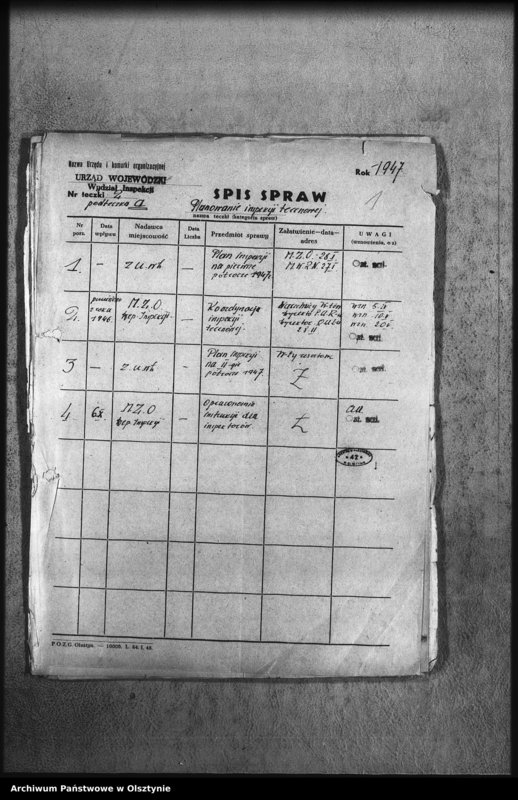 Nazwa Urzędu i komórki organizacyjnej
URZĄD WOJEWÓDZKI
Wydział Inspekcji
Nr teczki 2
podteczka a
Rok 1947
1
SPIS SPRAW
Planowanie inspekcji terenowej
nazwa teczki (kategoria spraw)
Nr porz.
Data wpływu
Nadawca miejscowość
Data Liczba
Przedmiot sprawy
Załatwienie—data—adres
UWAGI
(wznowienia, o z)
1.
—
z urzęd.
—
Plan inspekcji
na pierwsze
półrocze 1947 r.
M.Z.O. 26 I
M.A.P. 27 I
Ost. zał.
2.
z roku
1946
M.Z.O.
Dep. Inspekcji
—
Koordynacja
inspekcji
terenowej.
wzn. 5.II
wzn. 10.II
wzn. 20.II
Ost. zał.
3
—
z urzęd.
—
Plan inspekcji
na II-gie
półrocze 1947.
Ż
Ost. zał.
4.
6 X
M.Z.O.
Dep. Inspekcji
—
Opracowanie
instrukcji dla
inspektorów.
Ż
aa
Ost. zał.
* 47 *
P.O.Z.G. Olsztyn. — 10000. L. 64. I. 46.
Archiwum Państwowe w Olsztynie